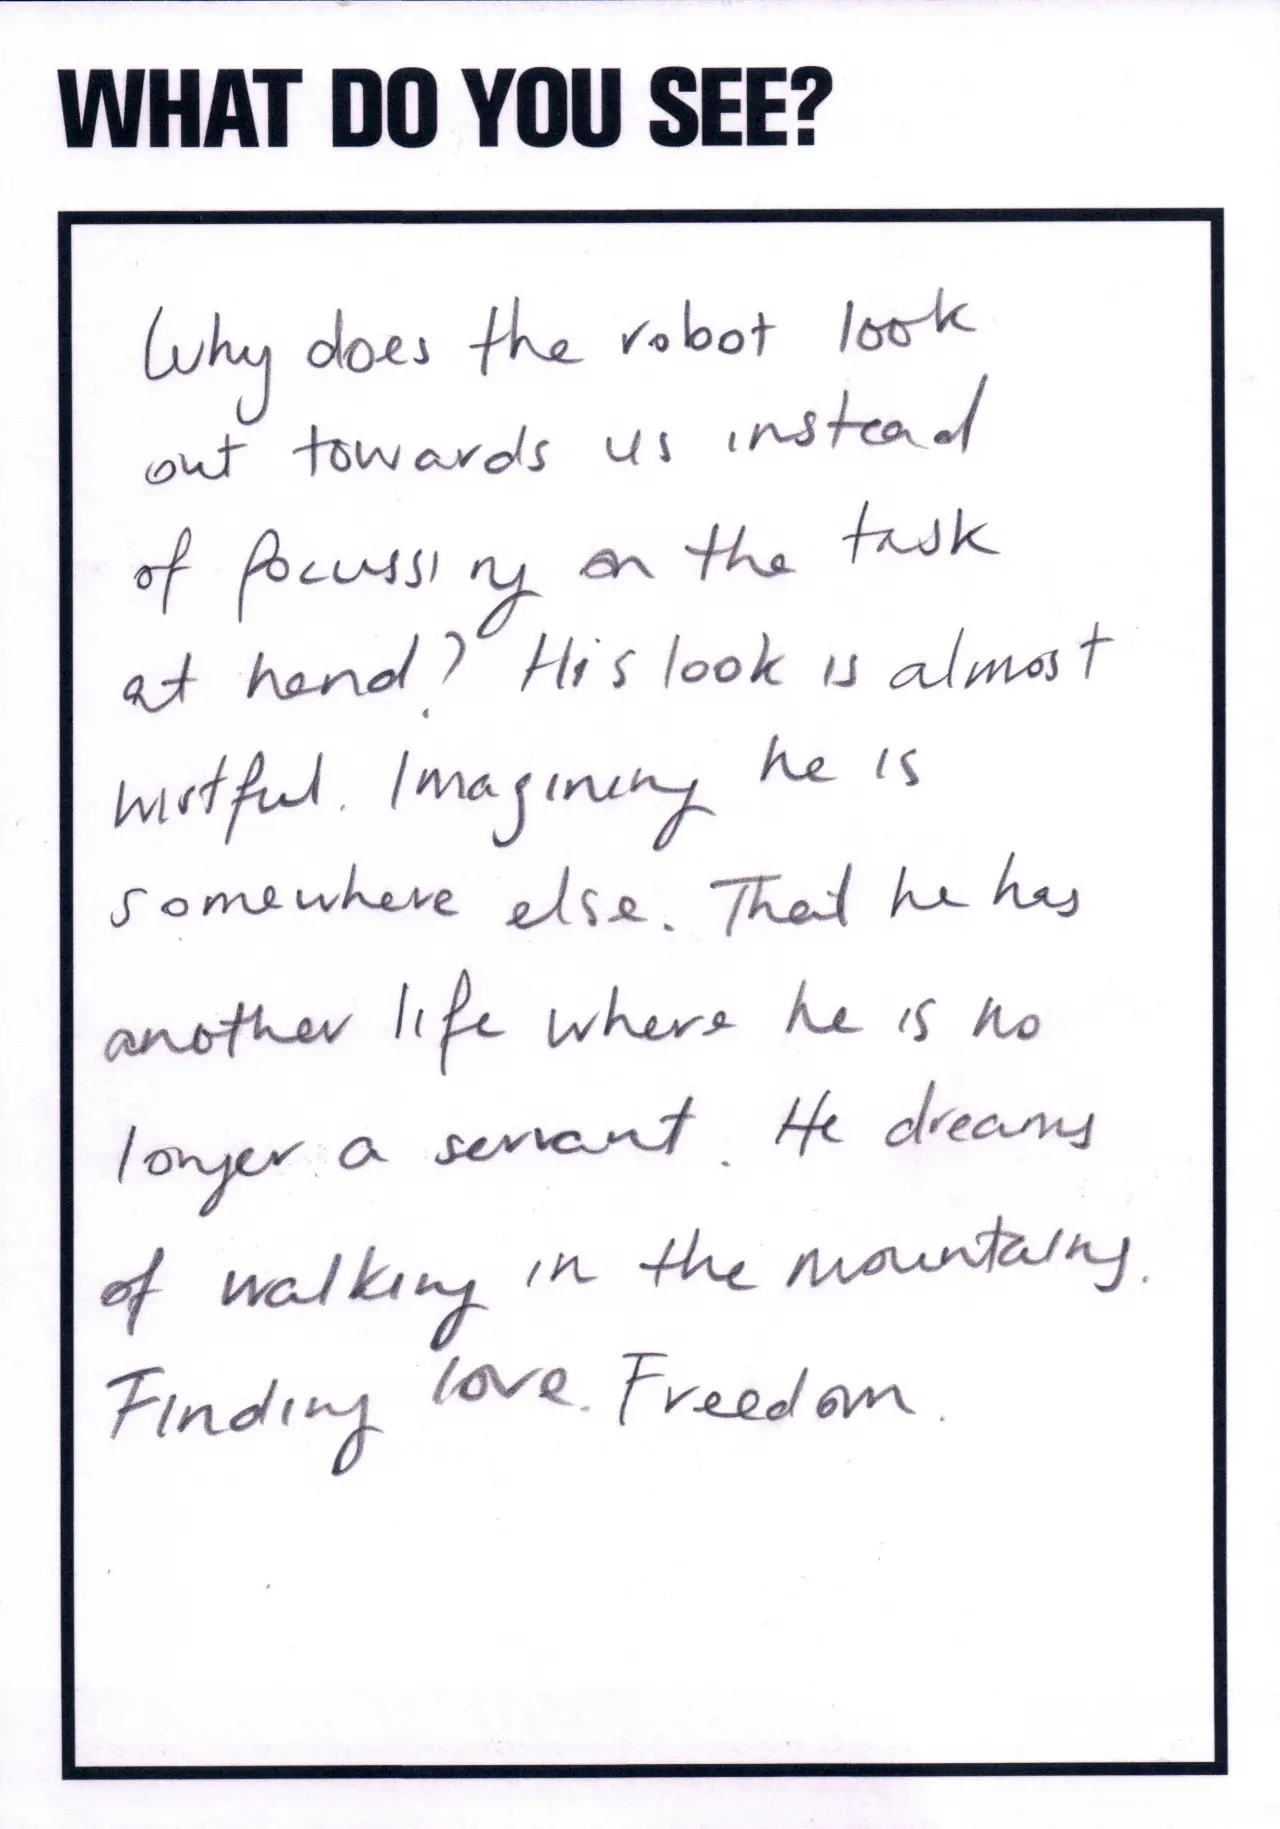 WHAT DO YOU SEE?
Why does the robot look
out towards us instead
of focussing on the task
at hand? His look is almost
wistful. Imagining he is
somewhere else. That he has
another life where he is no
longer a servant. He dreams
of walking in the mountains.
Finding love. Freedom.